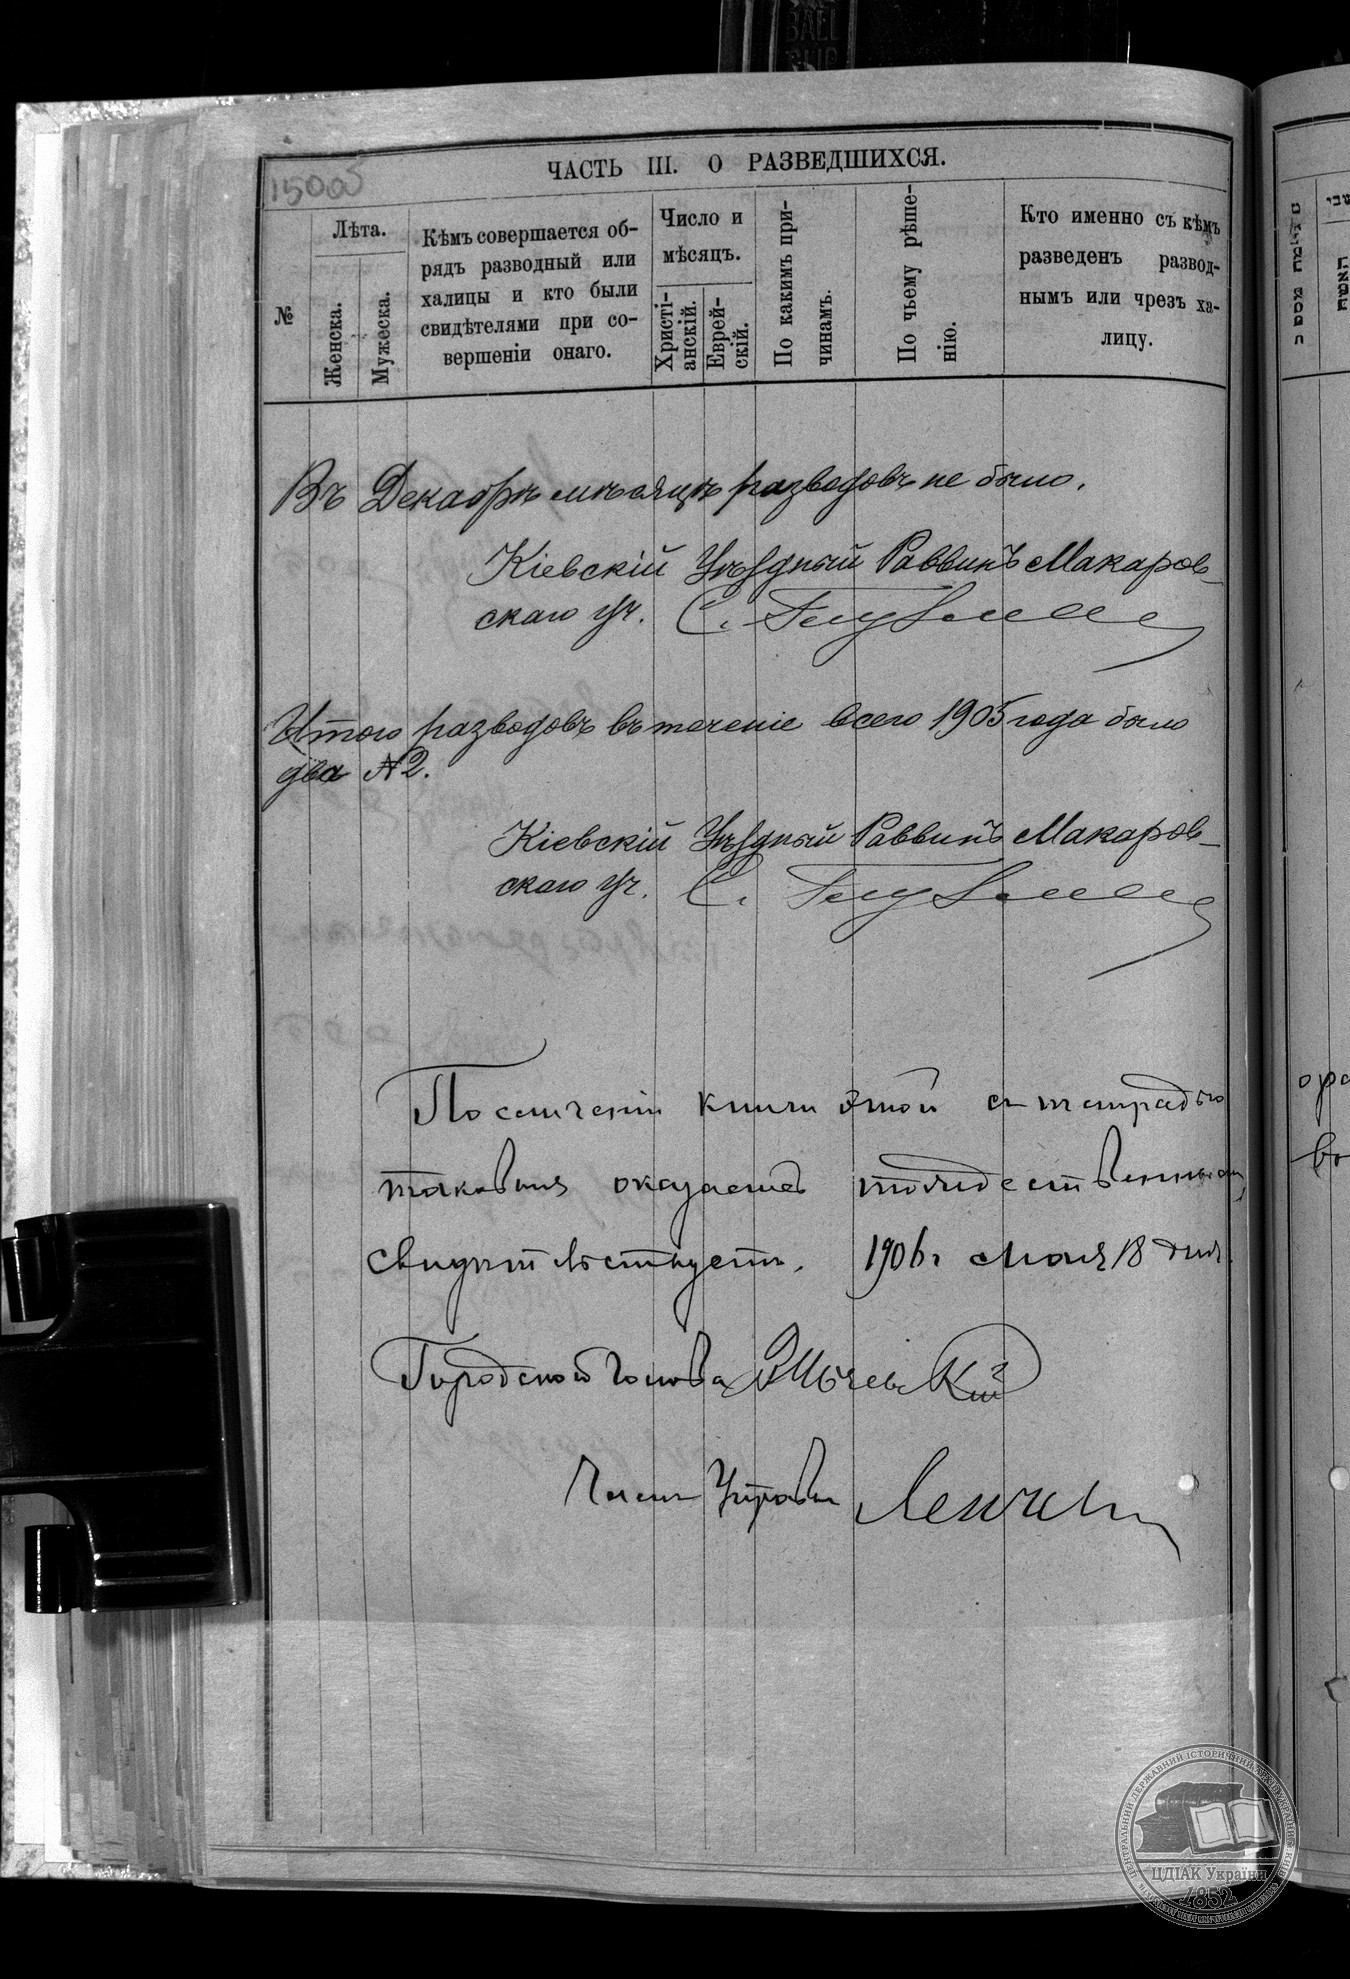 ЧАСТЬ III. О РАЗВЕДШИХСЯ.
№
Лѣта.
Женска.
Мужеска.
Кѣмъ совершается об-
рядъ разводный или
халицы и кто были
свидѣтелями при со-
вершеніи онаго.
Число и
мѣсяцъ.
Христі-
анскій.
Еврей-
скій.
По какимъ при-
чинамъ.
По чьему рѣше-
нію.
Кто именно съ кѣмъ
разведенъ развод-
нымъ или чрезъ ха-
лицу.
Въ Декабрѣ мѣсяцѣ разводовъ не было.
Кіевскій Уѣздный Раввинъ Макаров-
скаго уч. С.
Итого разводовъ въ теченіе всего 1905 года было
два № 2.
Кіевскій Уѣздный Раввинъ Макаров-
скаго уч. С.
По сличеніи книги этой съ тетрадью
таковыя оказались тождественными,
свидѣтельствуетъ. 1906 г. Мая 18 дня.
Городской Голова
Членъ Управы
ЦДІАК України
1852